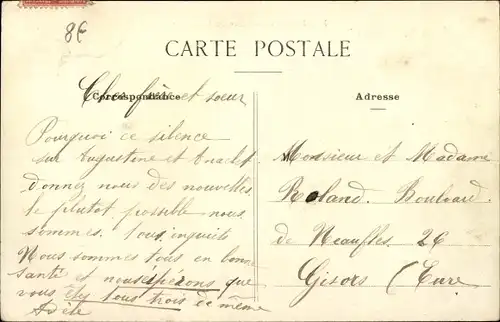 8€
CARTE POSTALE
Correspondance
Cher frère et soeur
Pourquoi ce silence
sur Augustine et Anaclet
donnez nous des nouvelles
le plutot possible nous
sommes tous inquiets
Nous sommes tous en bonne
santé et nous espérons que
vous êtes tous trois de même
Adèle
Adresse
Monsieur et Madame
Roland. Boulvard
de Neaufles 26
Gisors (Eure